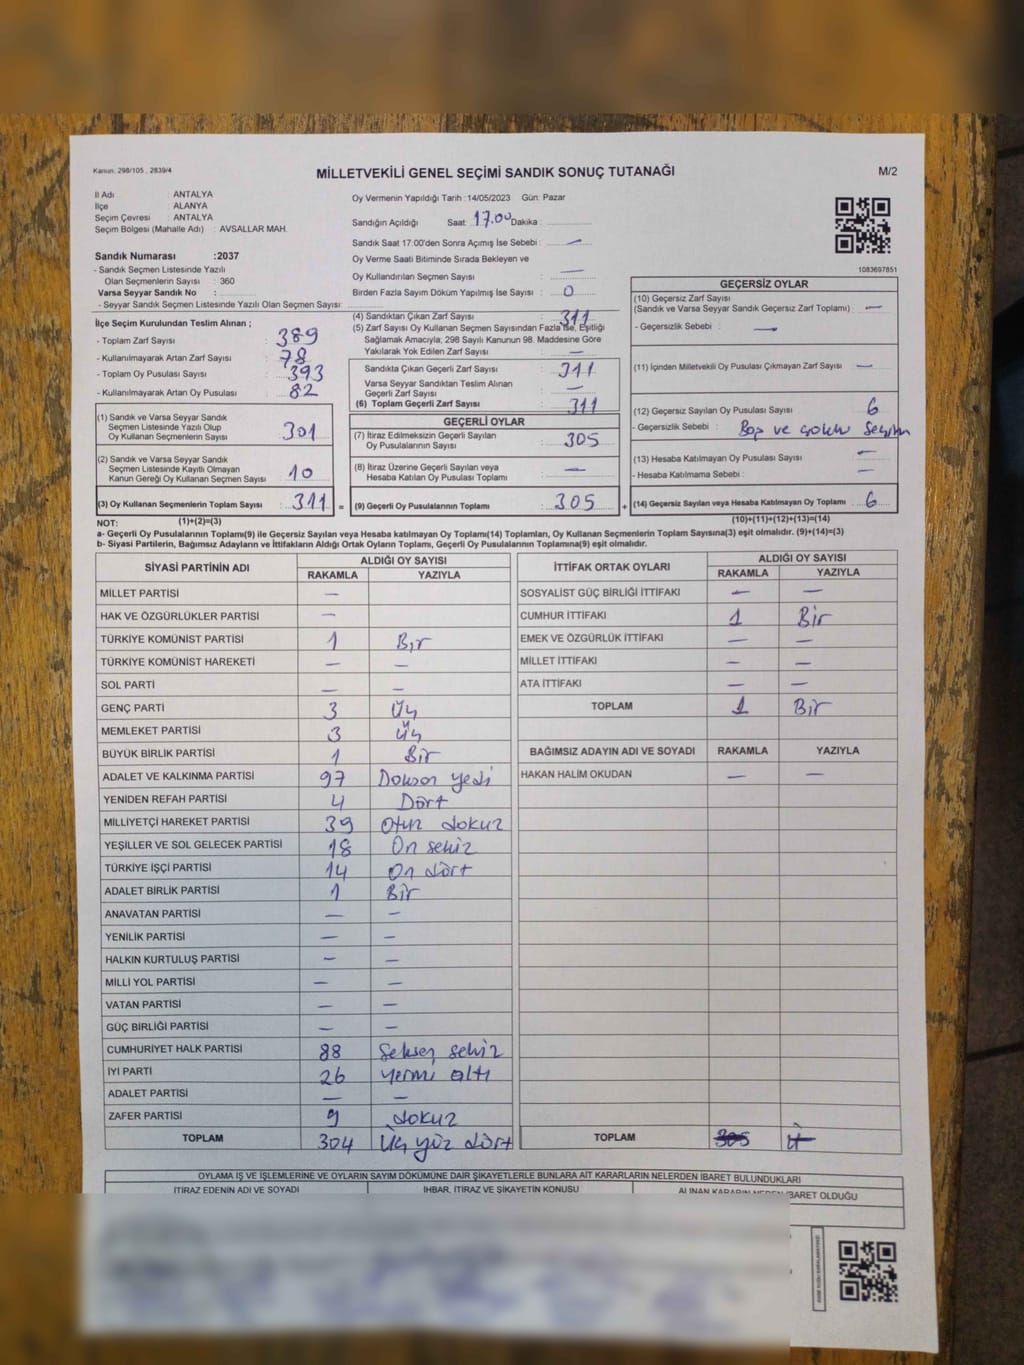 Kanun: 298/105 , 2839/4
MİLLETVEKİLİ GENEL SEÇİMİ SANDIK SONUÇ TUTANAĞI
M/2
İl Adı : ANTALYA
İlçe : ALANYA
Seçim Çevresi : ANTALYA
Seçim Bölgesi (Mahalle Adı) : AVSALLAR MAH.
Sandık Numarası :2037
- Sandık Seçmen Listesinde Yazılı
Olan Seçmenlerin Sayısı : 360
Varsa Seyyar Sandık No :
- Seyyar Sandık Seçmen Listesinde Yazılı Olan Seçmen Sayısı:
Oy Vermenin Yapıldığı Tarih :14/05/2023 Gün: Pazar
Sandığın Açıldığı Saat: 17.00 Dakika :
Sandık Saat 17.00'den Sonra Açımış İse Sebebi : —
Oy Verme Saati Bitiminde Sırada Bekleyen ve
Oy Kullandırılan Seçmen Sayısı : —
Birden Fazla Sayım Döküm Yapılmış İse Sayısı : 0
1083697851
İlçe Seçim Kurulundan Teslim Alınan ;
- Toplam Zarf Sayısı : 389
- Kullanılmayarak Artan Zarf Sayısı : 78
- Toplam Oy Pusulası Sayısı : 393
- Kullanılmayarak Artan Oy Pusulası : 82
(1) Sandık ve Varsa Seyyar Sandık
Seçmen Listesinde Yazılı Olup
Oy Kullanan Seçmenlerin Sayısı : 301
(2) Sandık ve Varsa Seyyar Sandık
Seçmen Listesinde Kayıtlı Olmayan
Kanun Gereği Oy Kullanan Seçmen Sayısı : 10
(3) Oy Kullanan Seçmenlerin Toplam Sayısı : 311 =
(1)+(2)=(3)
(4) Sandıktan Çıkan Zarf Sayısı : 311
(5) Zarf Sayısı Oy Kullanan Seçmen Sayısından Fazla İse, Eşitliği
Sağlamak Amacıyla; 298 Sayılı Kanunun 98. Maddesine Göre
Yakılarak Yok Edilen Zarf Sayısı : —
Sandıkta Çıkan Geçerli Zarf Sayısı : 311
Varsa Seyyar Sandıktan Teslim Alınan
Geçerli Zarf Sayısı : —
(6) Toplam Geçerli Zarf Sayısı : 311
GEÇERLİ OYLAR
(7) İtiraz Edilmeksizin Geçerli Sayılan
Oy Pusulalarının Sayısı : 305
(8) İtiraz Üzerine Geçerli Sayılan veya
Hesaba Katılan Oy Pusulası Toplamı : —
(9) Geçerli Oy Pusulalarının Toplamı : 305 +
GEÇERSİZ OYLAR
(10) Geçersiz Zarf Sayısı
(Sandık ve Varsa Seyyar Sandık Geçersiz Zarf Toplamı) : —
- Geçersizlik Sebebi : —
(11) İçinden Milletvekili Oy Pusulası Çıkmayan Zarf Sayısı : —
(12) Geçersiz Sayılan Oy Pusulası Sayısı : 6
- Geçersizlik Sebebi : Boş ve çoklu Seçim
(13) Hesaba Katılmayan Oy Pusulası Sayısı : —
- Hesaba Katılmama Sebebi : —
(14) Geçersiz Sayılan veya Hesaba Katılmayan Oy Toplamı : 6
(10)+(11)+(12)+(13)=(14)
NOT:
a- Geçerli Oy Pusulalarının Toplamı(9) ile Geçersiz Sayılan veya Hesaba katılmayan Oy Toplamı(14) Toplamları, Oy Kullanan Seçmenlerin Toplam Sayısına(3) eşit olmalıdır. (9)+(14)=(3)
b- Siyasi Partilerin, Bağımsız Adayların ve İttifakların Aldığı Ortak Oyların Toplamı, Geçerli Oy Pusulalarının Toplamına(9) eşit olmalıdır.
SİYASİ PARTİNİN ADI ALDIĞI OY SAYISI
RAKAMLA YAZIYLA
MİLLET PARTİSİ —
HAK VE ÖZGÜRLÜKLER PARTİSİ —
TÜRKİYE KOMÜNİST PARTİSİ 1 Bir
TÜRKİYE KOMÜNİST HAREKETİ — —
SOL PARTİ — —
GENÇ PARTİ 3 Üç
MEMLEKET PARTİSİ 3 Üç
BÜYÜK BİRLİK PARTİSİ 1 Bir
ADALET VE KALKINMA PARTİSİ 97 Doksan yedi
YENİDEN REFAH PARTİSİ 4 Dört
MİLLİYETÇİ HAREKET PARTİSİ 39 Otuz dokuz
YEŞİLLER VE SOL GELECEK PARTİSİ 18 On sekiz
TÜRKİYE İŞÇİ PARTİSİ 14 On dört
ADALET BİRLİK PARTİSİ 1 Bir
ANAVATAN PARTİSİ — —
YENİLİK PARTİSİ — —
HALKIN KURTULUŞ PARTİSİ — —
MİLLİ YOL PARTİSİ — —
VATAN PARTİSİ — —
GÜÇ BİRLİĞİ PARTİSİ — —
CUMHURİYET HALK PARTİSİ 88 Seksen sekiz
İYİ PARTİ 26 yirmi altı
ADALET PARTİSİ — —
ZAFER PARTİSİ 9 dokuz
TOPLAM 304 Üç yüz dört
İTTİFAK ORTAK OYLARI ALDIĞI OY SAYISI
RAKAMLA YAZIYLA
SOSYALİST GÜÇ BİRLİĞİ İTTİFAKI — —
CUMHUR İTTİFAKI 1 Bir
EMEK VE ÖZGÜRLÜK İTTİFAKI — —
MİLLET İTTİFAKI — —
ATA İTTİFAKI — —
TOPLAM 1 Bir
BAĞIMSIZ ADAYIN ADI VE SOYADI RAKAMLA YAZIYLA
HAKAN HALİM OKUDAN — —
TOPLAM 305
OYLAMA İŞ VE İŞLEMLERİNE VE OYLARIN SAYIM DÖKÜMÜNE DAİR ŞİKAYETLERLE BUNLARA AİT KARARLARIN NELERDEN İBARET BULUNDUKLARI
İTİRAZ EDENİN ADI VE SOYADI İHBAR, İTİRAZ VE ŞİKAYETİN KONUSU ALINAN KARARIN NEDEN İBARET OLDUĞU